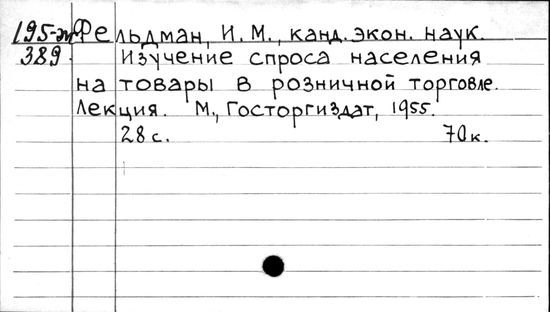 195-м Фельдман, И. М., канд. экон. наук.
389. Изучение спроса населения
на товары в розничной торговле.
Лекция. М., Госторгиздат, 1955.
28 с. 70 к.